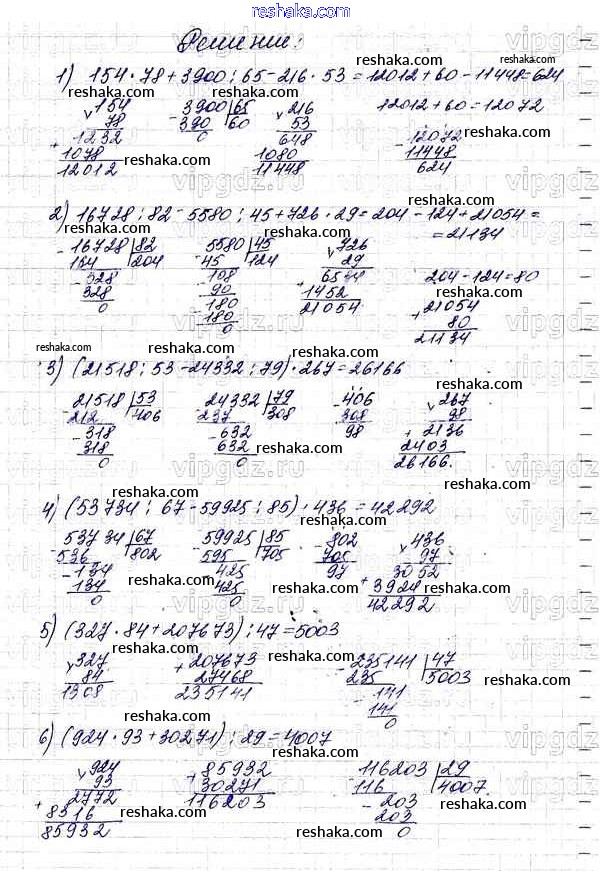 reshaka.com
Решение:
reshaka.com
1) 154 · 78 + 3900 : 65 - 216 · 53 = 12012 + 60 - 11448 = 624
154 3900 65 216 12012 + 60 = 12072
78 390 60 53
1232 0 648 12072
1078 1080 11448
12012 11448 624
2) 16728 : 82 - 5580 : 45 + 726 · 29 = 204 - 124 + 21054 =
= 21134
16728 82 5580 45 726
164 204 45 124 29
328 108 6534 204 - 124 = 80
328 90 1452 21054
0 180 21054 80
180 21134
0
3) (21518 : 53 - 24332 : 79) · 267 = 26166
21518 53 24332 79 406 267
212 406 237 308 308 98
318 632 98 2136
318 632 2403
0 0 26166.
4) (53734 : 67 - 59925 : 85) · 436 = 42292
53734 67 59925 85 802 436
536 802 595 705 705 97
134 425 97 3052
134 425 3924
0 0 42292
5) (327 · 84 + 207673) : 47 = 5003
327 207673 235141 47
84 27468 235 5003
1308 235141 141
141
0
6) (924 · 93 + 30271) : 29 = 4007
924 85932 116203 29
93 30271 116 4007.
2772 116203 203
8316 203
85932 0